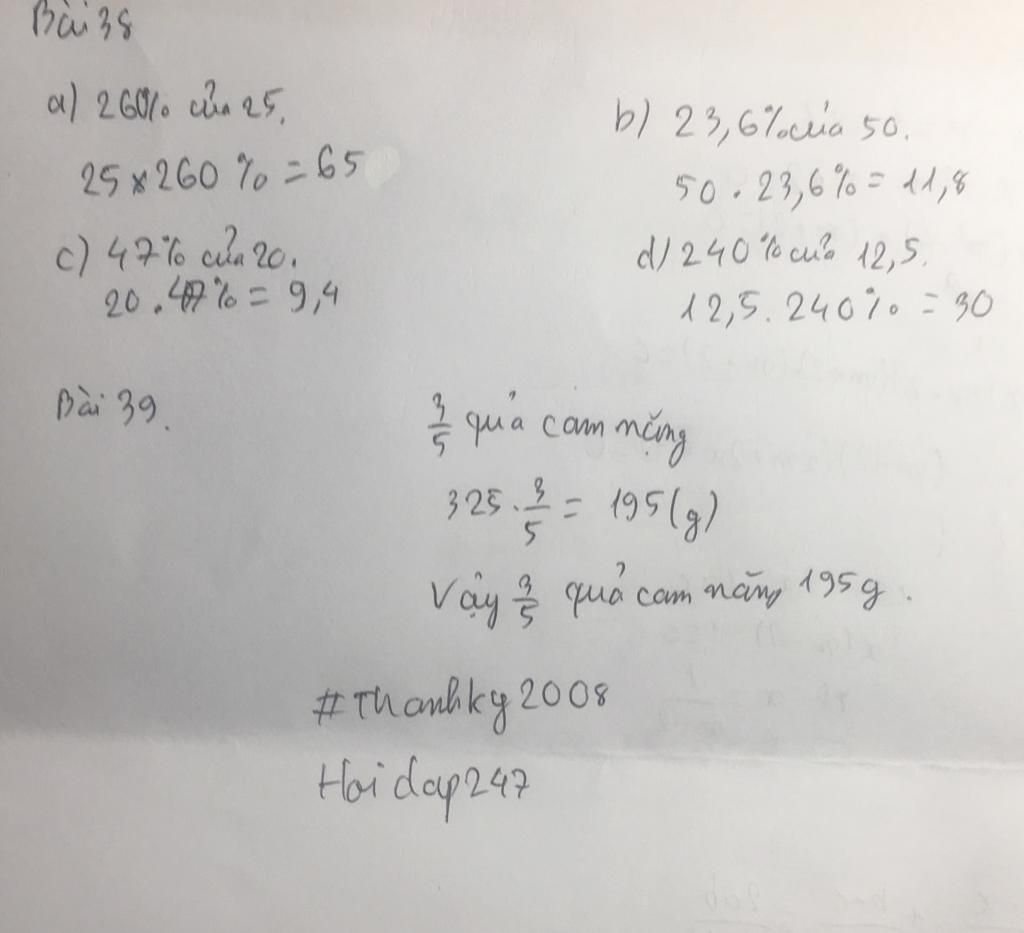 Bài 38
a) 260% của 25.
25 x 260 % = 65
b) 23,6% của 50.
50 . 23,6% = 11,8
c) 47% của 20.
20 . 47% = 9,4
d) 240% của 12,5.
12,5 . 240% = 30
Bài 39.
3/5 quả cam nặng
325 . 3/5 = 195 (g)
Vậy 3/5 quả cam nặng 195g.
#Thanhky2008
Hoidap247